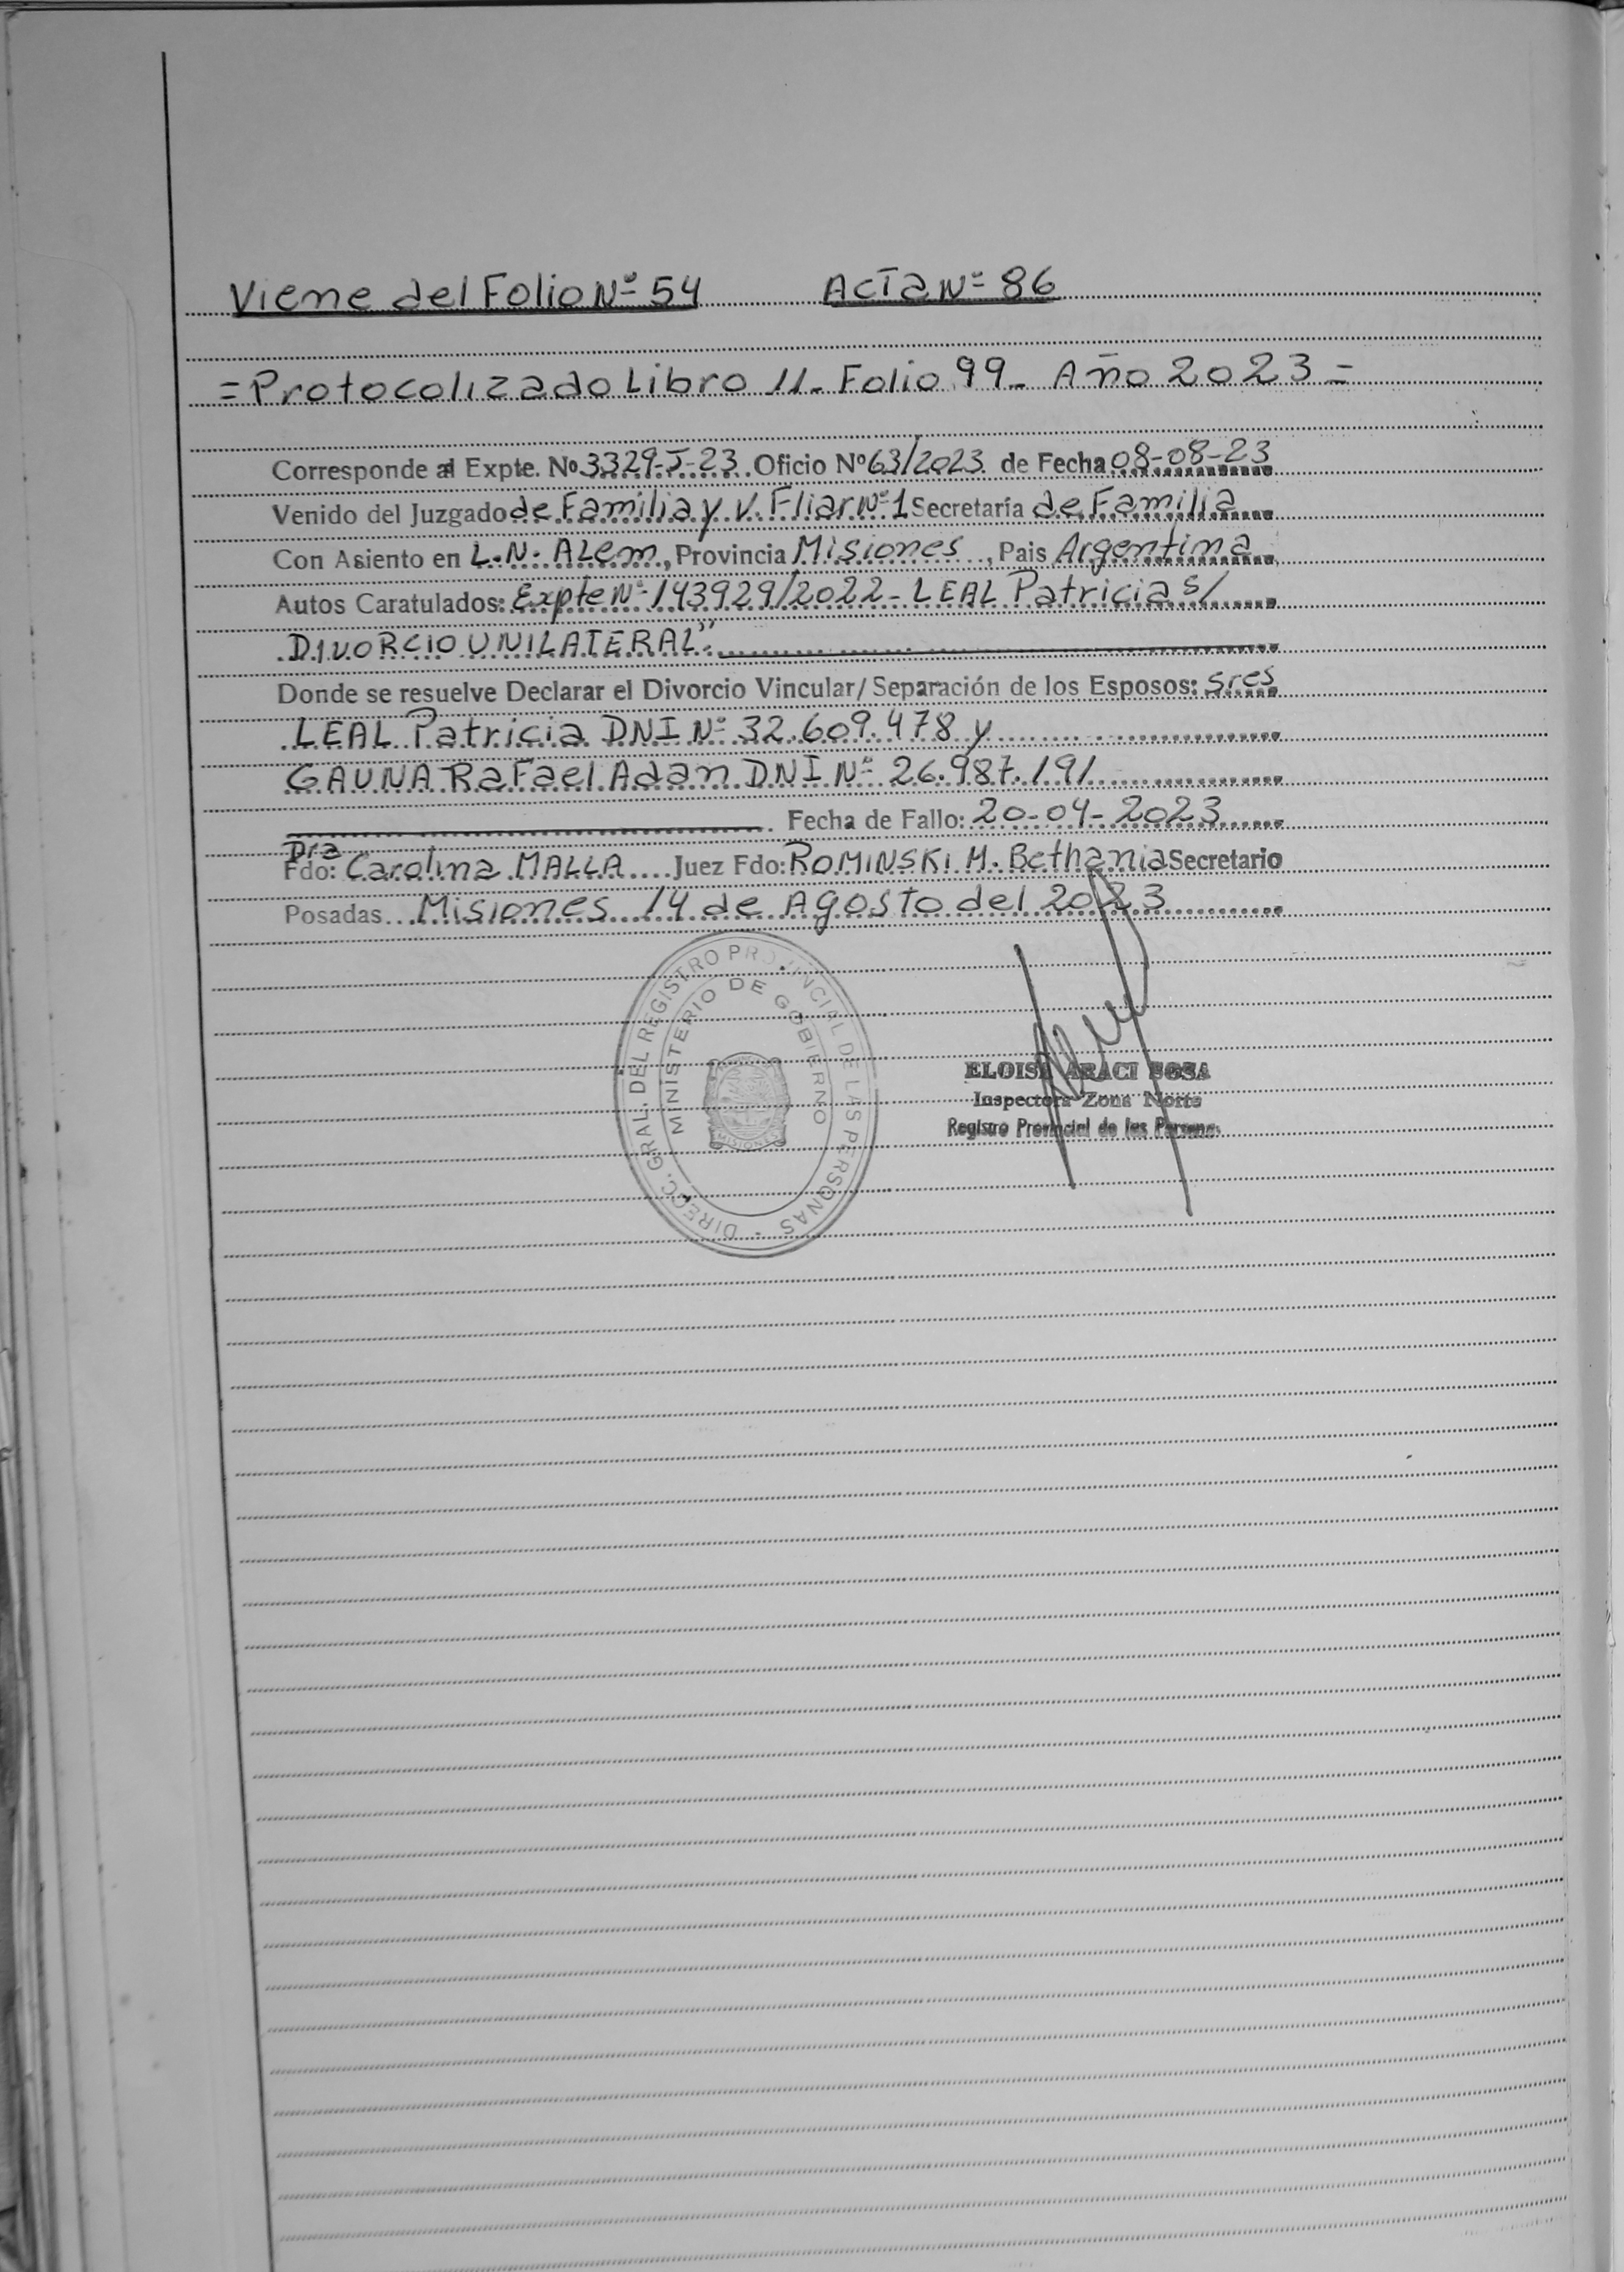 Viene del Folio Nº 54 Acta Nº 86
= Protocolizado Libro 11 - Folio 99 - Año 2023 =
Corresponde al Expte. Nº 3329-J-23 Oficio Nº 63/2023 de Fecha 08-08-23
Venido del Juzgado de Familia y V. Fliar Nº 1 Secretaría de Familia
Con Asiento en L.N. Alem, Provincia Misiones, Pais Argentina
Autos Caratulados: Expte Nº 143929/2022 - LEAL Patricia s/
DIVORCIO UNILATERAL"
Donde se resuelve Declarar el Divorcio Vincular/ Separación de los Esposos: sres
LEAL Patricia DNI Nº 32.609.478 y
GAUNA Rafael Adan DNI Nº 26.987.191
Fecha de Fallo: 20-04-2023
Dra
Fdo: Carolina MALLA Juez Fdo: ROMINSKI M. Bethania Secretario
Posadas Misiones 14 de Agosto del 2023
DIRECC. GRAL. DEL REGISTRO PROVINCIAL DE LAS PERSONAS -
MINISTERIO DE GOBIERNO
MISIONES
ELOISA ARACI SOSA
Inspectora Zona Norte
Registro Provincial de las Personas